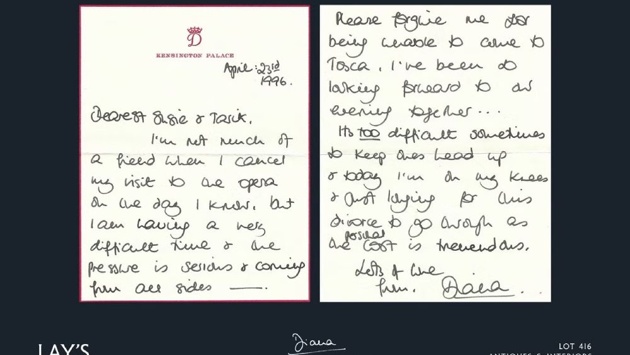 D
KENSINGTON PALACE
April: 23rd
1996.
Dearest Susie & Tarik,
I'm not much of
a friend when I cancel
my visit to the opera
on the day I know, but
I am having a very
difficult time & the
pressure is serious & coming
from all sides ——.
Please forgive me for
being unable to come to
Tosca. I've been so
looking forward to our
evening together...
It's too difficult sometimes
to keep ones head up
& today I'm on my knees
& just longing for this
divorce to go through as
the personal cost is tremendous.
Lots of love
from. Diana.
Diana
LAY'S
LOT 416